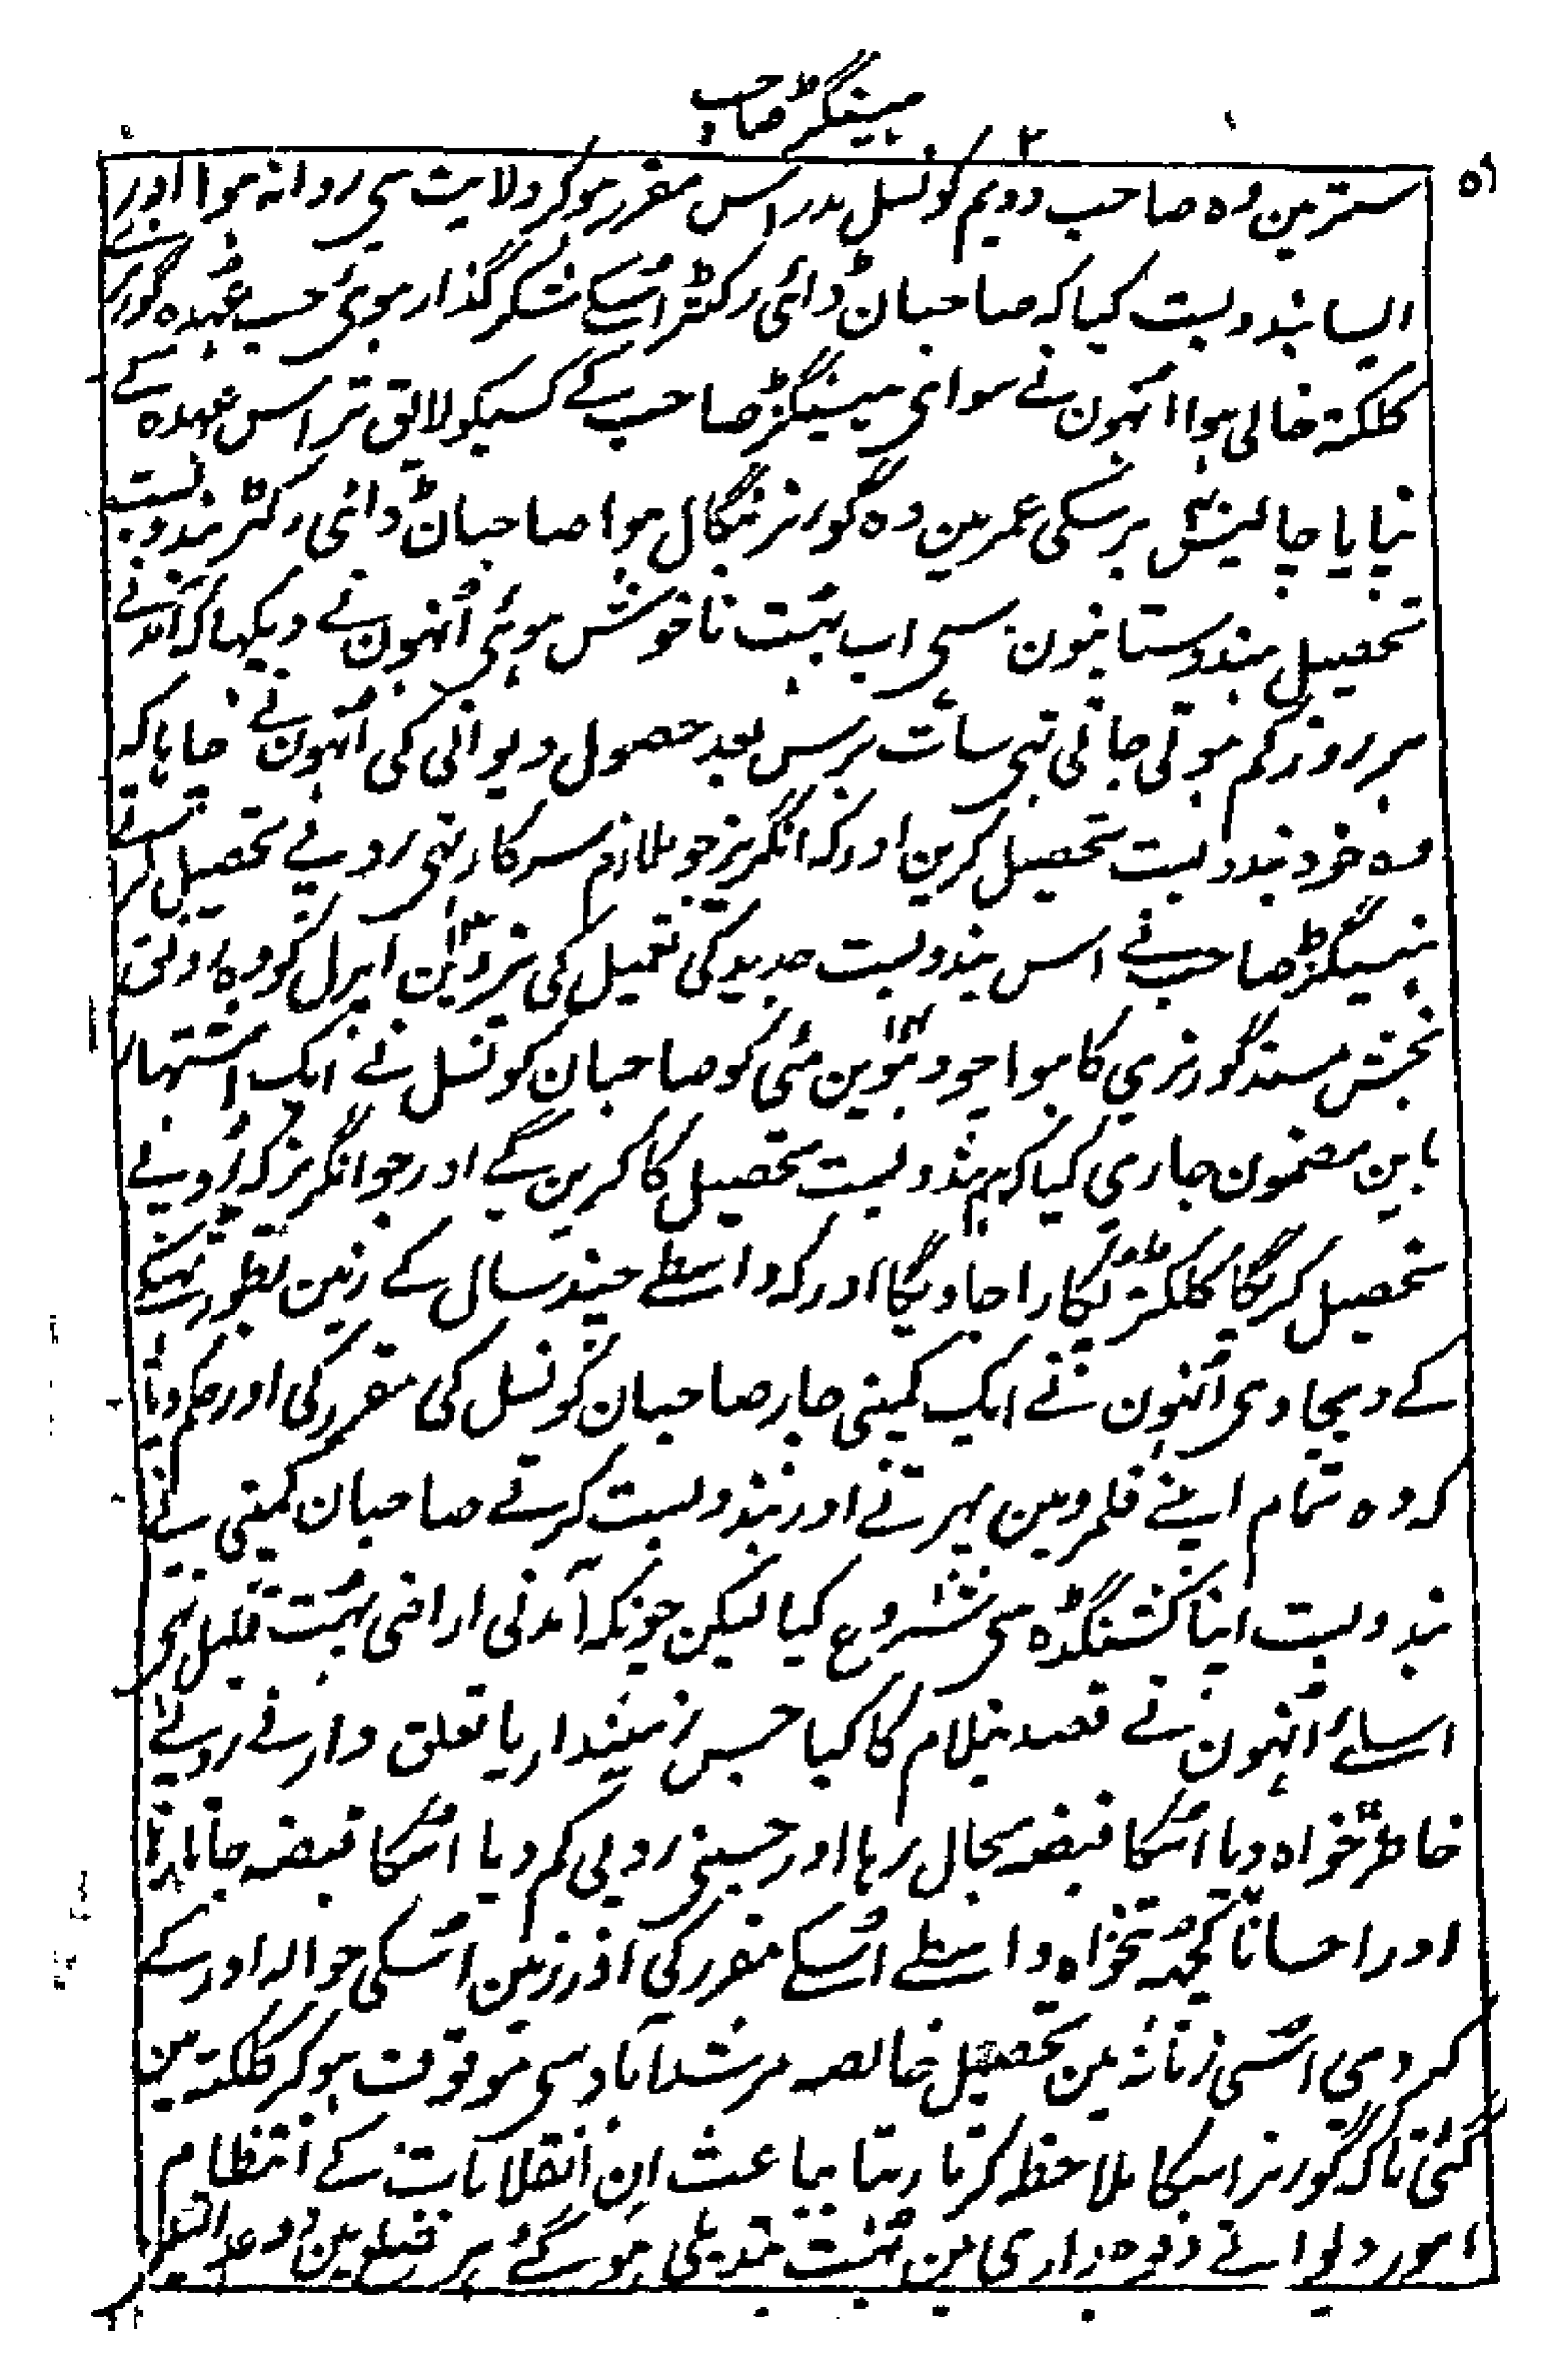 ہیسٹنگز صاحب
۲
۵۱
ستر مین وہ صاحب دویم کونسل مدراس مقرر ہوکر ولایت سی روانہ ہوا اور
ایسا بندوبست کیا کہ صاحبان ڈائی رکٹر اُسکے شکر گذار ہوئی جب عُہدہ گورنرے
کلکتہ خالی ہوا اُنہون نے سوای ہیسٹنگز صاحب کے کسیکو لایق تر اس عہدہ کے
نپایا چالیس برسکی عمر مین وہ گورنر بنگال ہوا صاحبان ڈائی رکٹر بندوبست
تحصیل ہندوستانیون سی اب بہُت ناخوش ہوئی اُنہون نے دیکہا کہ آمدنے
ہر روز کم ہوتی جاتی تہی سات برس بعد حصول دیوانی کی اُنہون نے چاہا کہ
وہ خود بندوبست تحصیل کرین اور کہ انگریز جو ملازم سرکار تہی روپیے تحصیل کرتے
ہیسٹنگز صاحب نے اس بندوبست جدید کی تعمیل کی ۱۳ اپرل کو وہ رونق
بخش مسند گورنری کا ہوا چودہوین مئی کو صاحبان کونسل نے ایک اشتہار
باین مضمون جاری کیا کہ ہم بندوبست تحصیل کا کرین گے اور جو انگریز کہ روپیے
تحصیل کریگا کلکٹر پکارا جاویگا اور کہ واسطے چند سال کے زمین بطور ٹہیکے
کے دیجاوی اُنہون نے ایک کمیٹی چار صاحبان کونسل کی مقرر کی اور حکم دیا
کہ وہ تمام اپنے قلمرو مین پہرتے اور بندوبست کرتے صاحبان کمیٹی نے
بندوبست اپنا کشنگڈہ سی شروع کیا لیکن چونکہ آمدنی اراضی بہُت قلیل تہی
اسلئے اُنہون نے قصد نیلام کا کیا جس زمیندار یا تعلق دار نے روپیے
خاطر خواہ دیا اُسکا قبضہ بحال رہا اور جسنی روپی کم دیا اُسکا قبضہ جاتا رہا
اور احساناً کُچہہ تنخواہ واسطے اُسکے مقرر کی اور زمین اُسکی حوالہ اور کے
کردی اُسی زمانہ مین تحصیل خالصہ مرشدآباد سی موقوف ہوکر کلکتہ مین
گئی تاکہ گورنر اسکا ملاحظہ کرتا رہتا بباعث اِن انقلابات کے انتظام
امور دیوانے و فوجداری مین بہُت تبدیلی ہوگئے ہر ضلع مین دو عدالتین